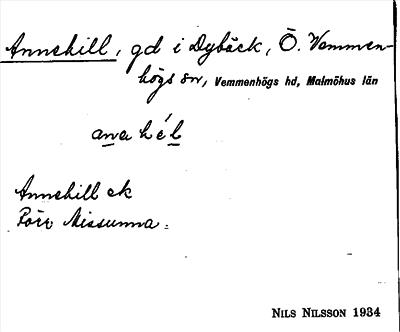 Annehill, gd i Dybäck, Ö. Vemmen-
högs sn, Vemmenhögs hd, Malmöhus län
ana hél
Annehill ek
Förr Missunna.
NILS NILSSON 1934